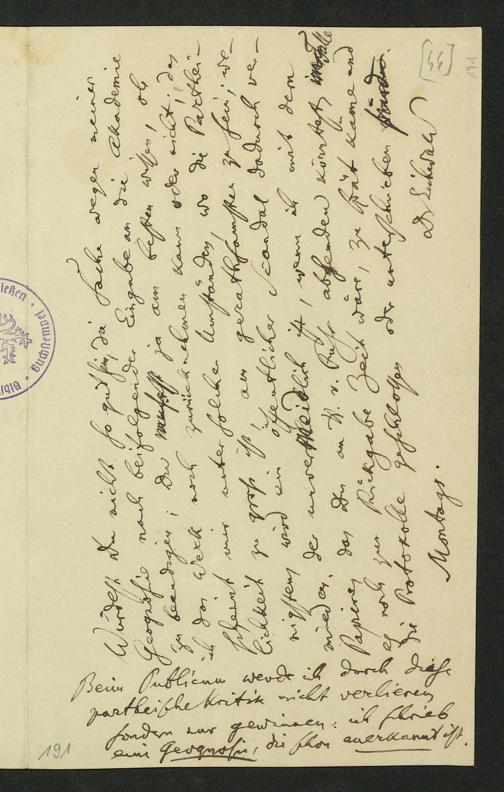 [44]
191
Würdest du nicht so gut sein, die Sache wegen meiner
Geognosie nach beifolgender Eingabe an die Akademie
zu beendigen; Du mußt ja am besten wissen, ob
ich das Werk noch zurücknehmen kann oder nicht; das
scheint mir unter solchen Umständen, wo die Parthei-
lichkeit zu groß ist, am gerathensten zu sein; we-
nigstens wird ein öffentlicher Scandal dadurch ver-
mieden, der unvermeidlich ist, wenn ich mit dem
Papiere, das Du an H. v. Fuß absenden könntest,
es noch zur Rückgabe Zeit wäre, zu spät käme und
die Protokolle geschlossen oder unterschrieben
Dr Eichwald
Montags.
Beim Publicum werde ich durch diese
partheiische Kritik nicht verlieren
sondern nur gewinnen: ich schrieb
eine Geognosie, die schon anerkannt ist.
191